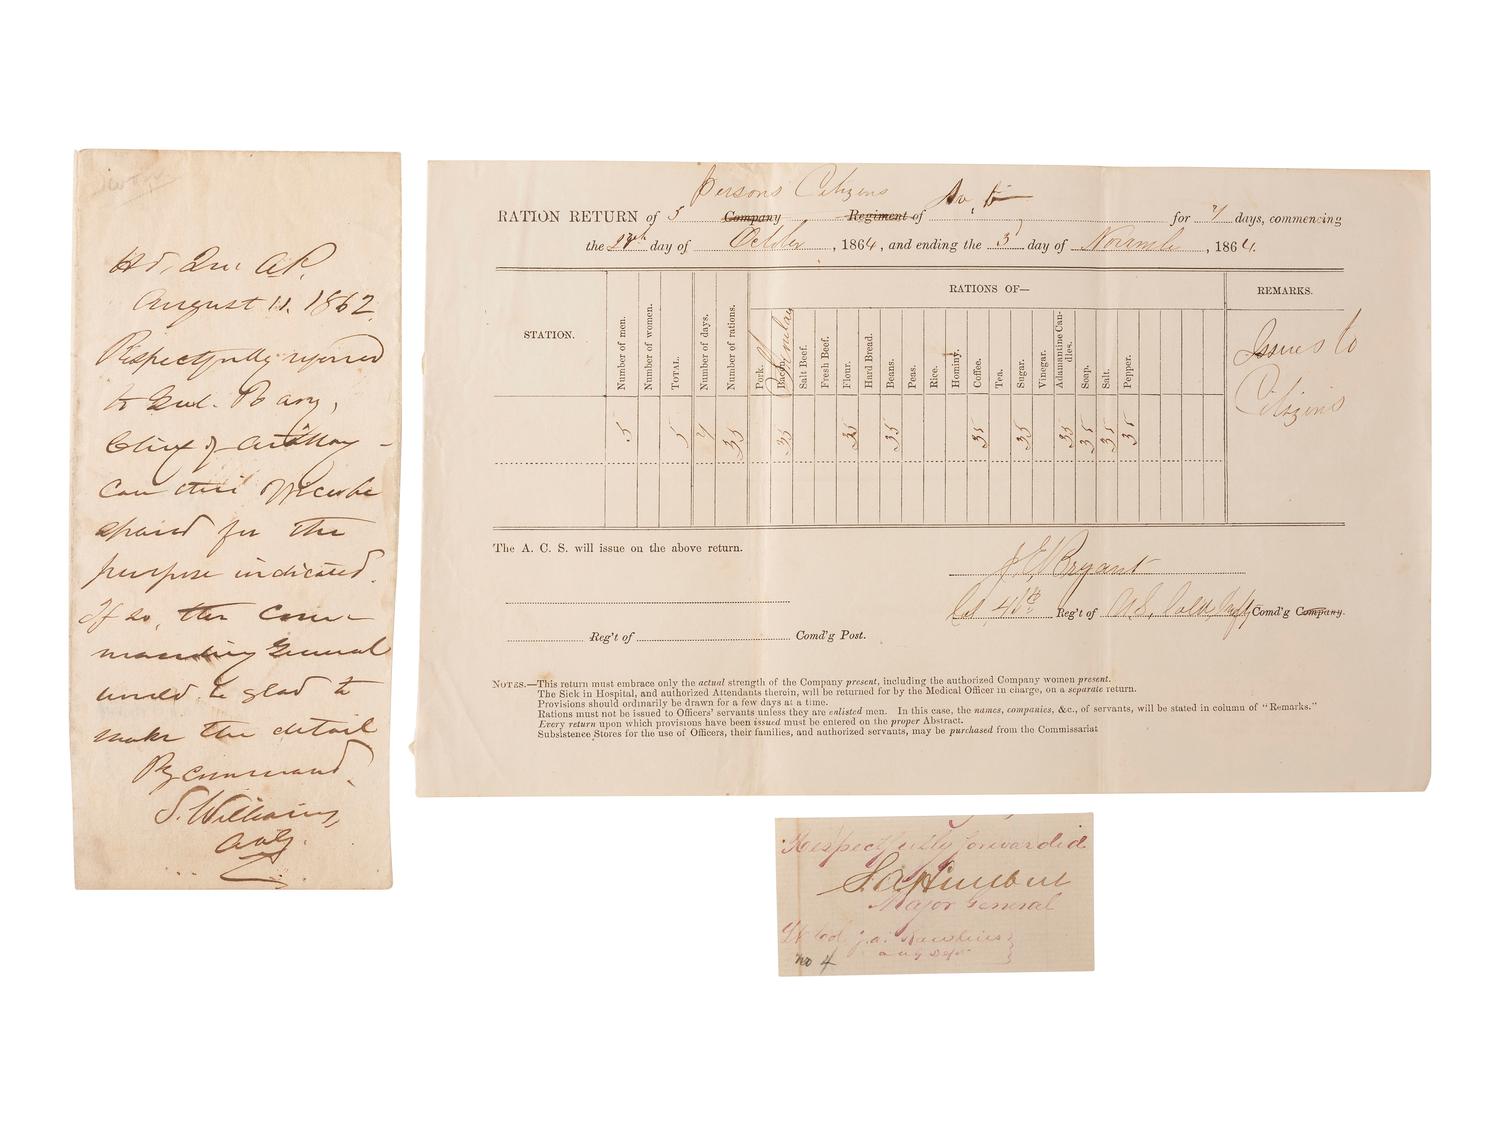 Hd. Qrs. A.P.
August 11. 1862.
Respectfully referred
to Genl. Barry,
Chief of Artillery -
Can this Officer be
spared for the
purpose indicated.
If so, the Com-
manding General
would be glad to
make the detail
By command.
S. Williams,
A.A.G.
Persons Citizens
RATION RETURN of 5 Company Regiment of for 7 days, commencing
the 28th day of October, 1864, and ending the 3d day of November, 1864.
RATIONS OF—
REMARKS.
STATION.
Number of men.
Number of women.
TOTAL.
Number of days.
Number of rations.
Pork.
Bacon.
Salt Beef.
Fresh Beef.
Flour.
Hard Bread.
Beans.
Peas.
Rice.
Hominy.
Coffee.
Tea.
Sugar.
Vinegar.
Adamantine Can-
dles.
Soap.
Salt.
Pepper.
Issues to
Citizens
5 5 7 35 35 35 35 35 35 35 35 35 35
The A. C. S. will issue on the above return.
J. E. Bryant
Col 46th Reg't of U.S. Cold. Infty Comd'g Company.
Reg't of Comd'g Post.
NOTES.—This return must embrace only the actual strength of the Company present, including the authorized Company women present.
The Sick in Hospital, and authorized Attendants therein, will be returned for by the Medical Officer in charge, on a separate return.
Provisions should ordinarily be drawn for a few days at a time.
Rations must not be issued to Officers' servants unless they are enlisted men. In this case, the names, companies, &c., of servants, will be stated in column of "Remarks."
Every return upon which provisions have been issued must be entered on the proper Abstract.
Subsistence Stores for the use of Officers, their families, and authorized servants, may be purchased from the Commissariat
Respectfully forwarded
S. A. Hurlbut
Major General
Lt Col J. A. Rawlins
a a g Dept
no 4